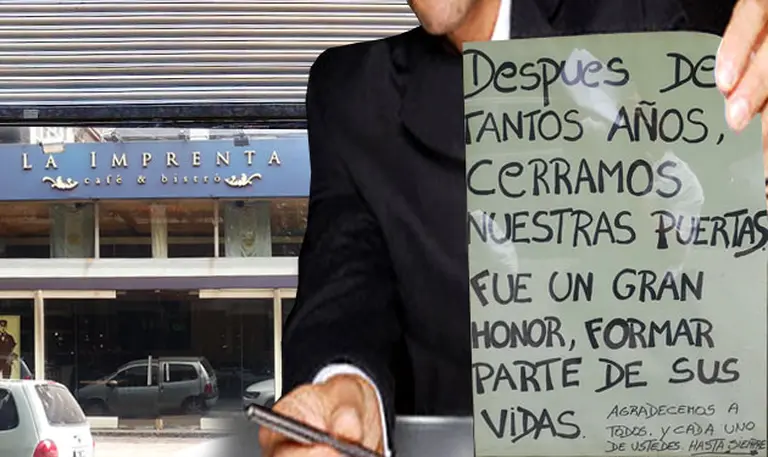 LA IMPRENTA
café & bistró
DESPUES DE
TANTOS AÑOS,
CERRAMOS
NUESTRAS PUERTAS.
FUE UN GRAN
HONOR, FORMAR
PARTE DE SUS
VIDAS.
AGRADECEMOS A
TODOS. Y CADA UNO
DE USTEDES. HASTA SIEMPRE